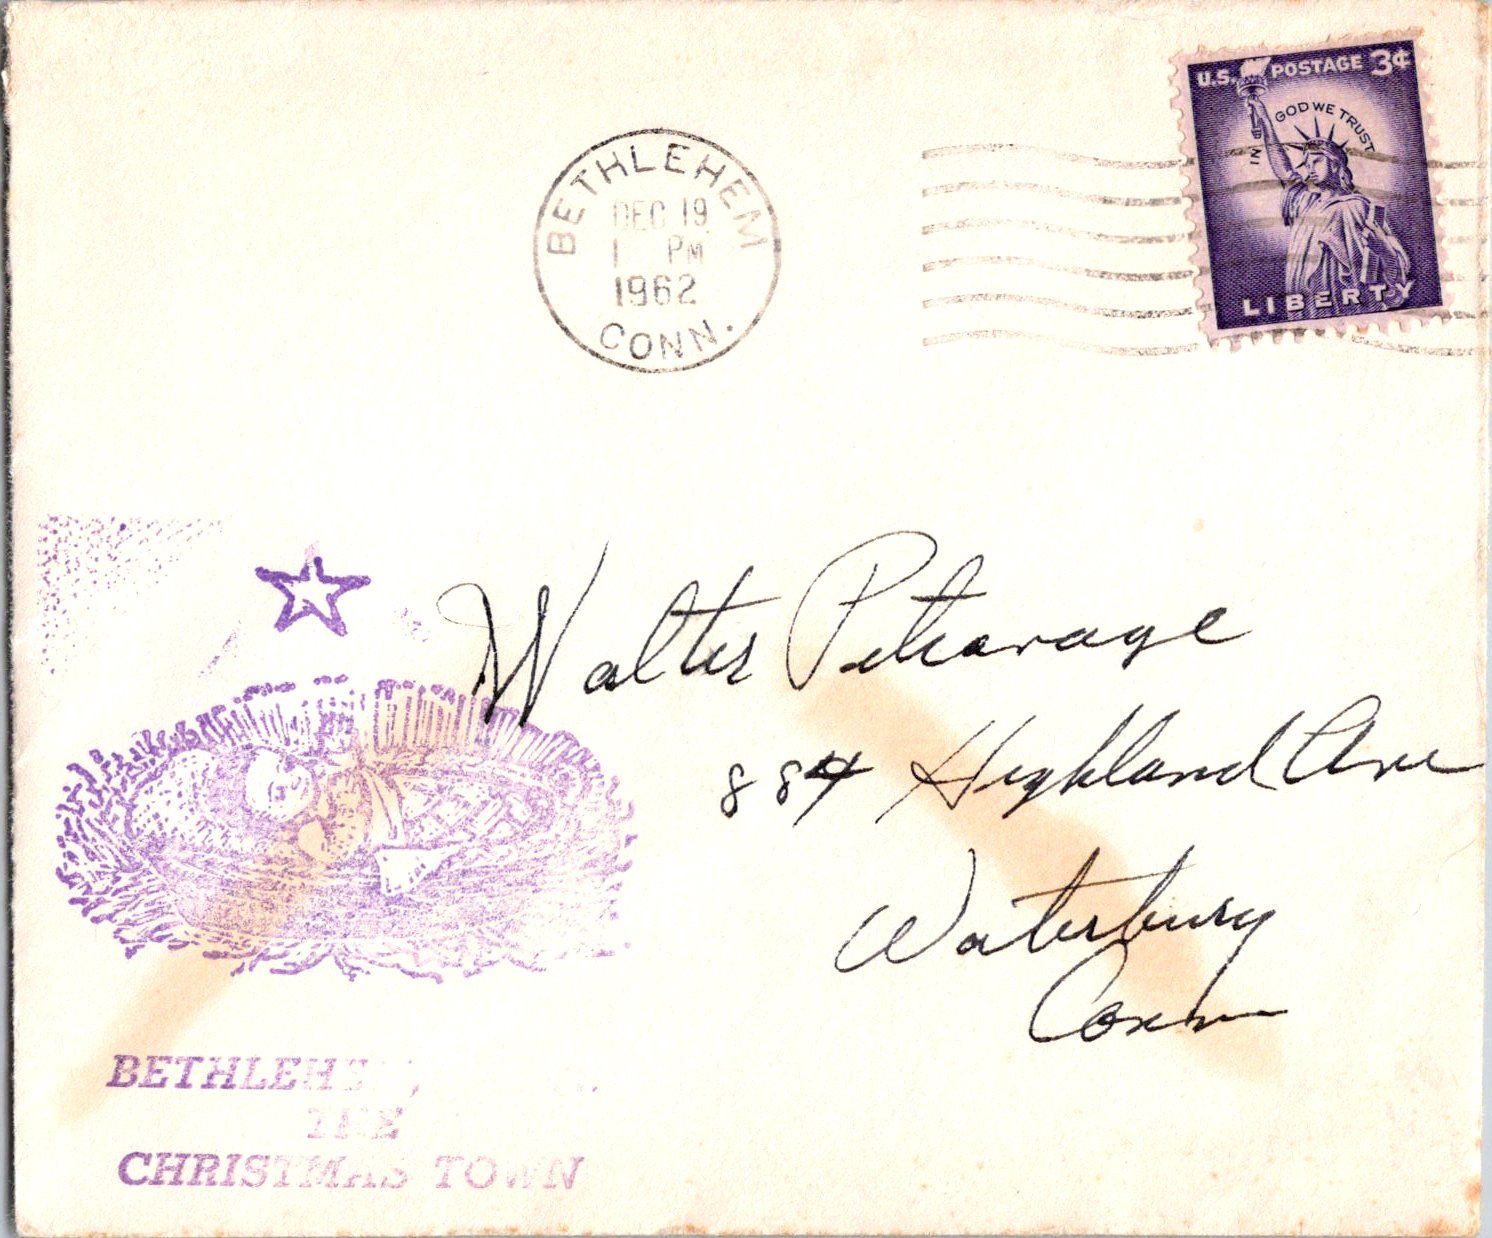 U.S. POSTAGE 3¢
IN GOD WE TRUST
LIBERTY
BETHLEHEM
DEC 19
1 PM
1962
CONN.
Walter
884 Highland Ave
Waterbury
Conn
BETHLEHEM,
THE
CHRISTMAS TOWN